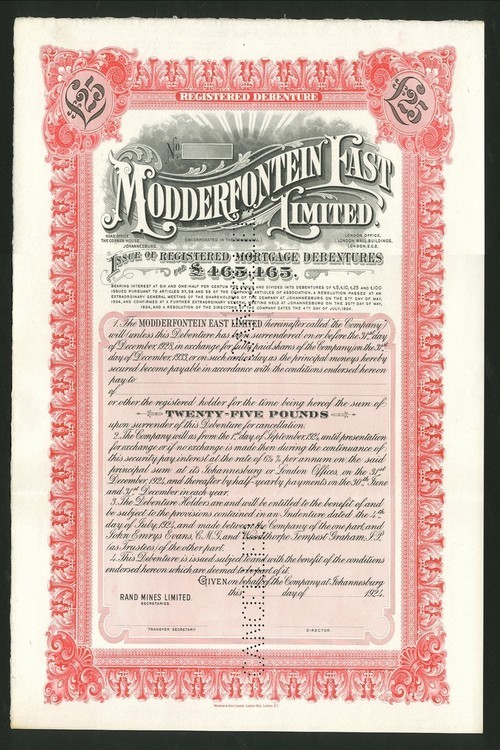 £25
£25
REGISTERED DEBENTURE
No
MODDERFONTEIN EAST
LIMITED.
HEAD OFFICE,
THE CORNER HOUSE,
JOHANNESBURG.
INCORPORATED IN THE
LONDON OFFICE,
LONDON WALL BUILDINGS,
LONDON, E.C.2.
ISSUE OF REGISTERED MORTGAGE DEBENTURES
FOR £465,465.
BEARING INTEREST AT SIX AND ONE-HALF PER CENTUM AND DIVIDED INTO DEBENTURES OF £5, £10, £25 AND £100
ISSUED PURSUANT TO ARTICLES 57, 58 AND 59 OF THE COMPANY'S ARTICLES OF ASSOCIATION, A RESOLUTION PASSED AT AN
EXTRAORDINARY GENERAL MEETING OF THE SHAREHOLDERS OF THE COMPANY AT JOHANNESBURG ON THE DAY OF MAY,
1924, AND CONFIRMED AT A FURTHER EXTRAORDINARY GENERAL MEETING HELD AT JOHANNESBURG ON THE DAY OF MAY,
1924, AND A RESOLUTION OF THE DIRECTORS OF THE COMPANY DATED THE 4TH DAY OF JULY, 1924.
1. The MODDERFONTEIN EAST LIMITED (hereinafter called "the Company")
will (unless this Debenture has been surrendered, on or before the 31st day
of December, 1928, in exchange for fully paid shares of the Company) on the 31st
day of December, 1933, or on such earlier day as the principal moneys hereby
secured become payable in accordance with the conditions endorsed hereon
pay to
of
or other the registered holder for the time being hereof the sum of
TWENTY-FIVE POUNDS
upon surrender of this Debenture for cancellation.
2. The Company will as from the 1st day of September, 1924, until presentation
for exchange or if no exchange is made then during the continuance of
this security pay interest at the rate of 6½% per annum on the said
principal sum at its Johannesburg or London Offices, on the 31st
December, 1924, and thereafter by half-yearly payments on the 30th June
and 31st December in each year.
3. The Debenture Holders are and will be entitled to the benefit of and
be subject to the provisions contained in an Indenture dated the 4th
day of July, 1924, and made between the Company of the one part, and
John Emrys Evans, C.M.G., and Tempest Graham, J.P.
(as Trustees) of the other part.
4. This Debenture is issued subject to and with the benefit of the conditions
endorsed hereon which are deemed to be part of it.
GIVEN on behalf of the Company at Johannesburg
this day of 1924.
RAND MINES LIMITED.
SECRETARIES.
TRANSFER SECRETARY
DIRECTOR.
CANCELLED